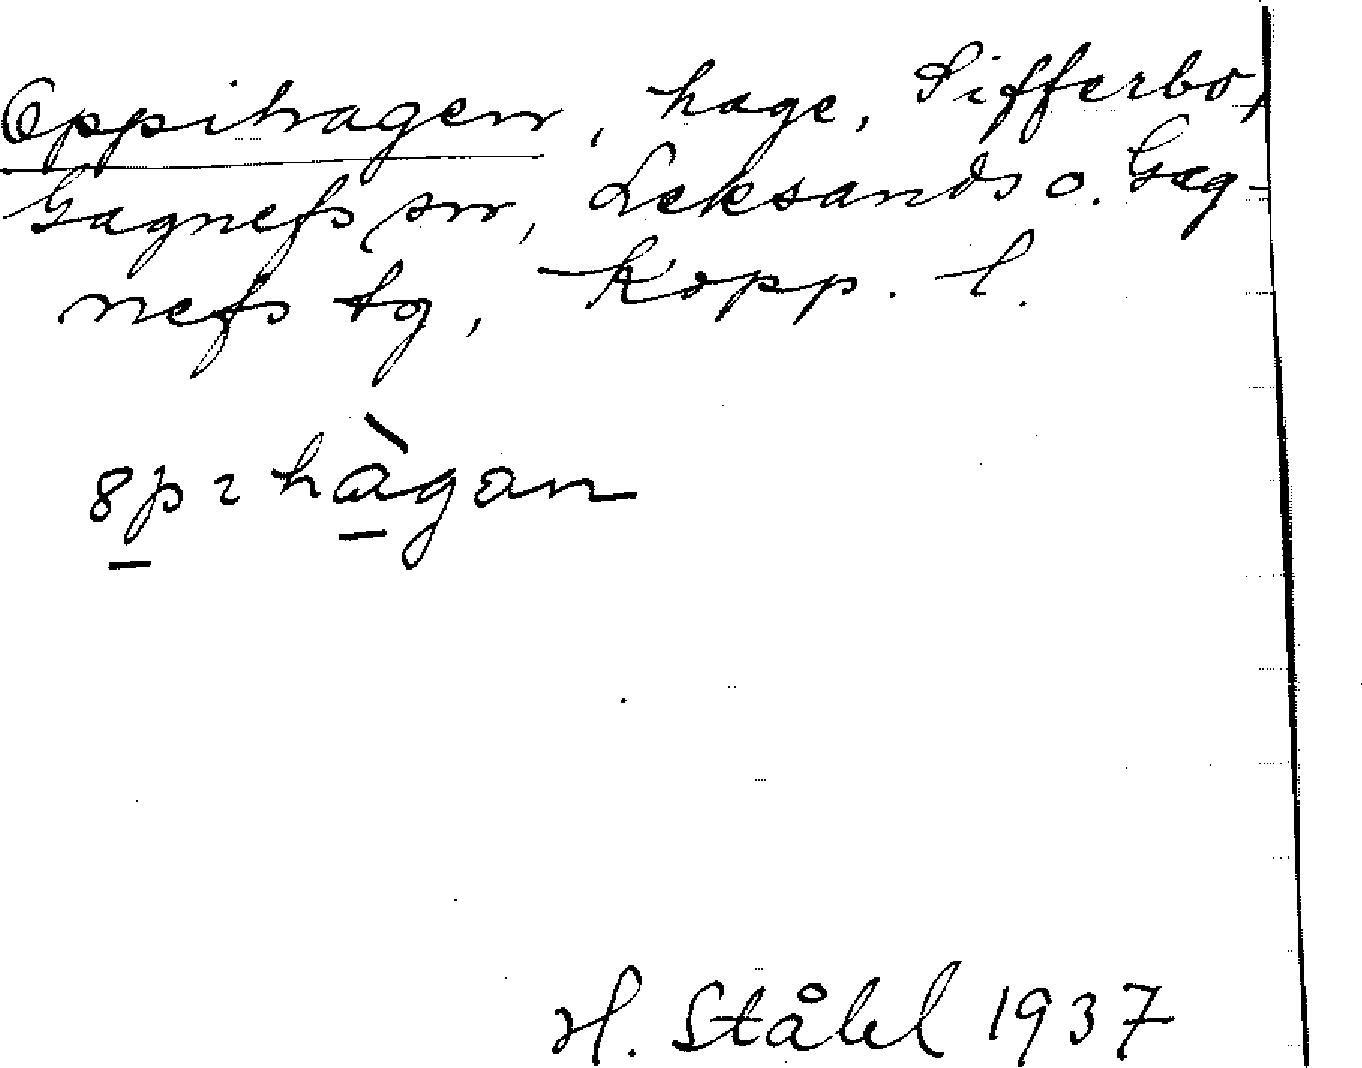 Oppihagen, hage, Sifferbo,
Gagnefs sn, Leksands o. Gag-
nefs tg, Kopp. l.
H. Ståhl 1937